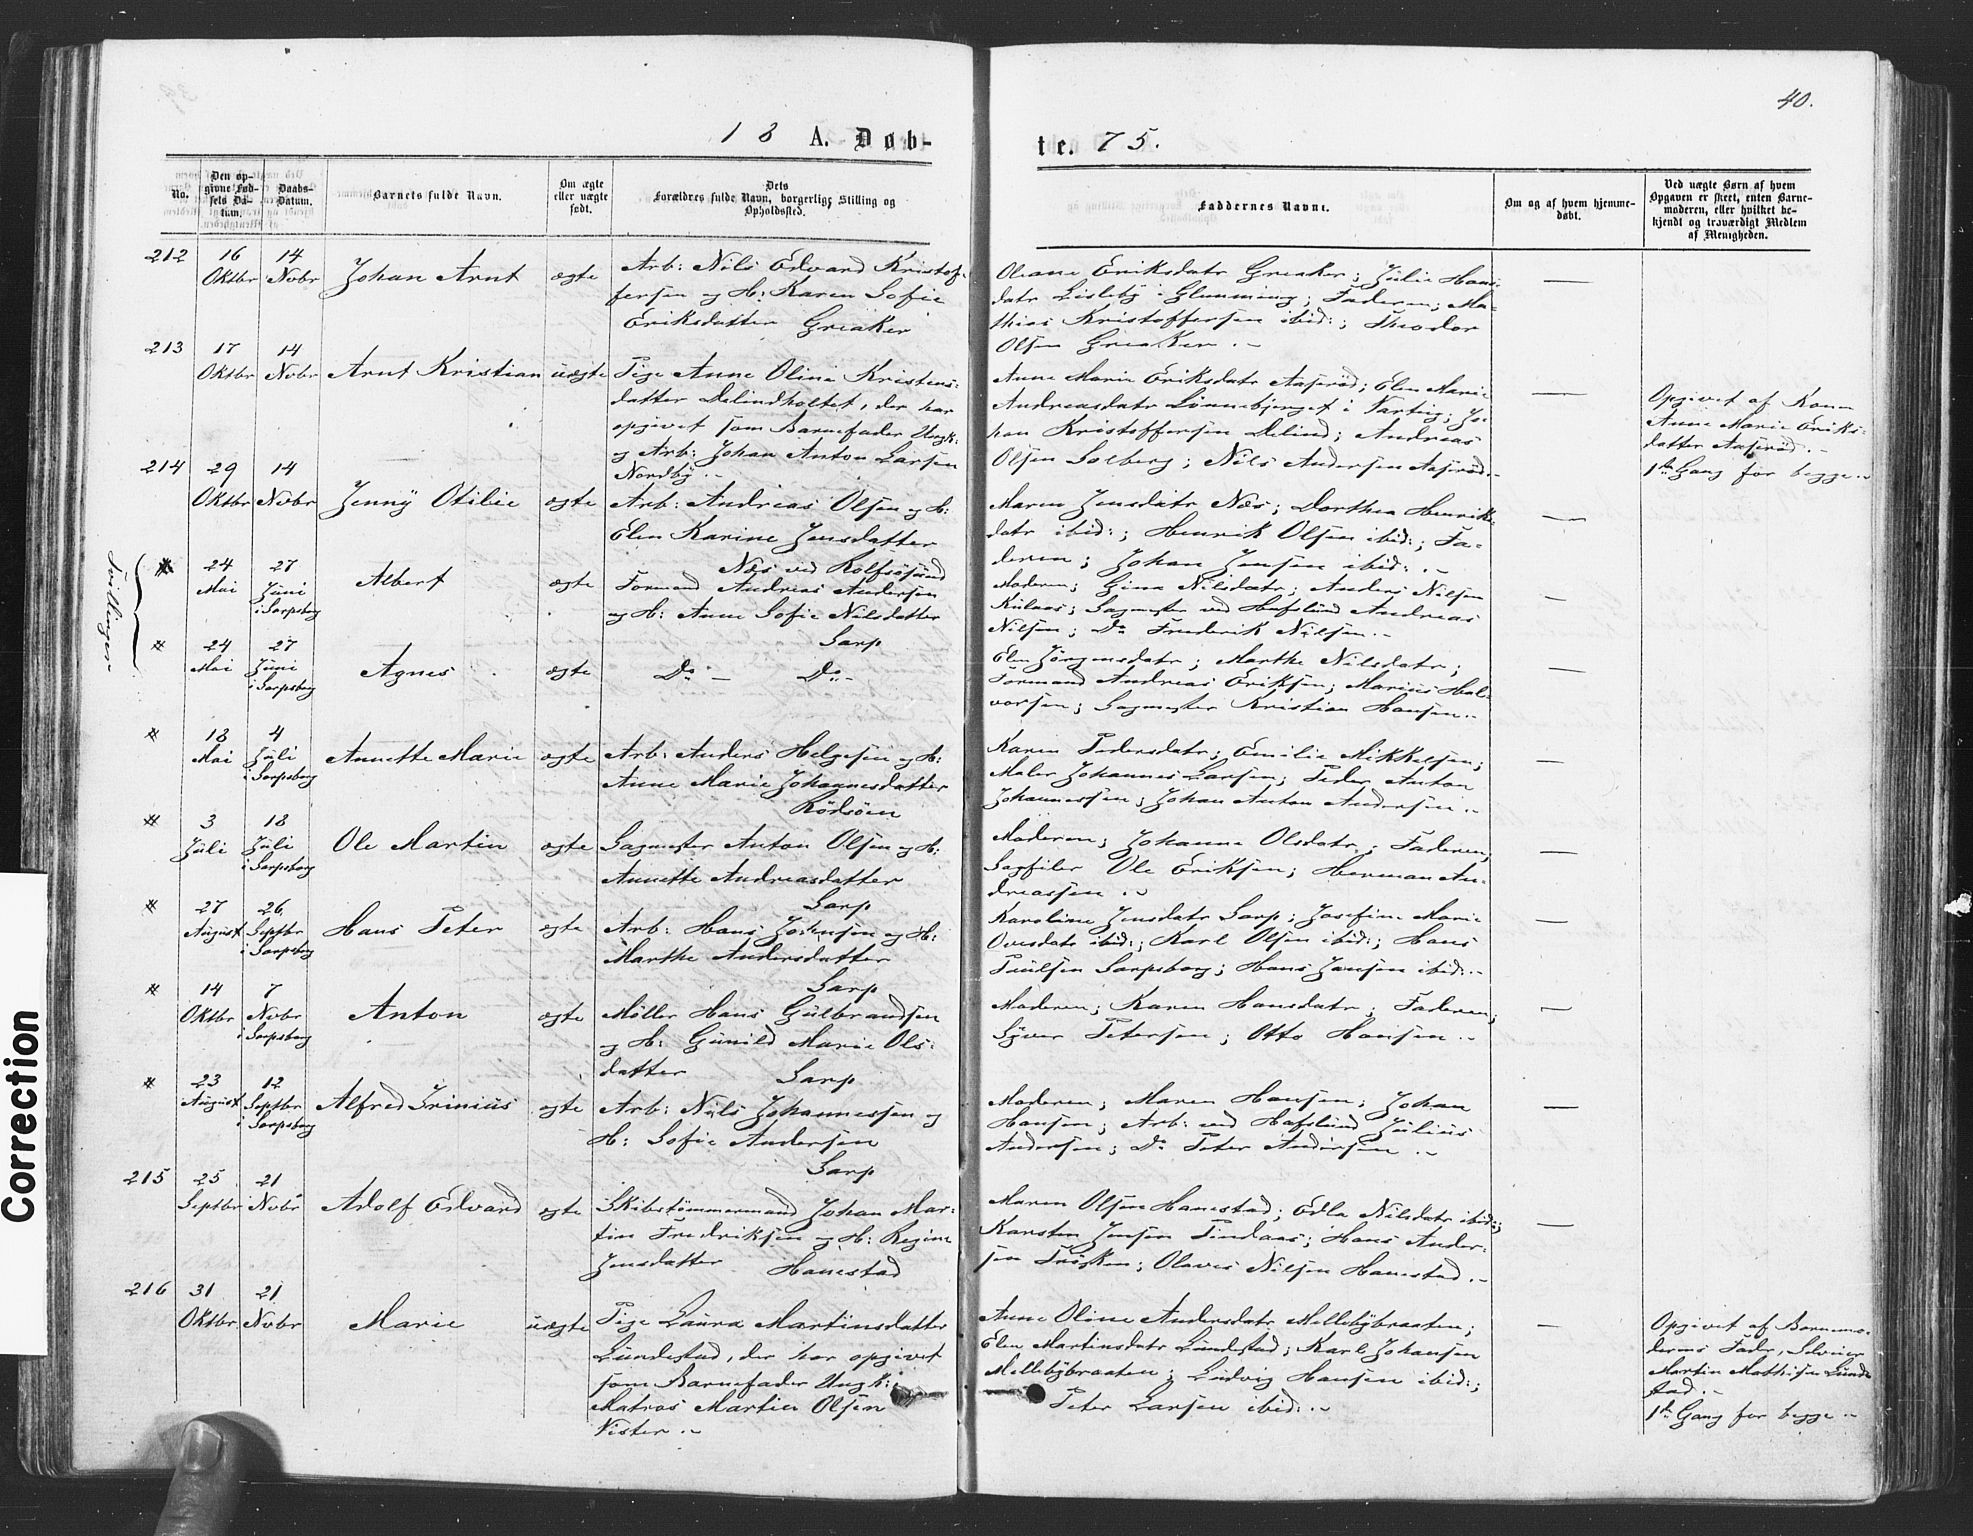 40.
18 A. Døb-
te. 75.
No.
Den op-
givne Fød-
sels Da-
tum.
Daabs-
Datum.
Barnets fulde Navn.
Om ægte
eller uægte
født.
Dets
Forældres fulde Navn, borgerlige Stilling og
Opholdssted.
Faddernes Navne.
Om og af hvem hjemme-
døbt.
Ved uægte Børn af hvem
Opgaven er skeet, enten Barne-
moderen, eller hvilket be-
kjendt og troværdigt Medlem
af Menigheden.
212
16
Oktbr
14
Novbr
Johan Arnt
ægte
Arb: Nils Edvard Kristof-
fersen og H: Karen Sofie
Eriksdatter Greaker
Oleane Eriksdatr Greaker; Julie Hans-
datr Lisleby i Glemming; Faderen; Ma-
thias Kristoffersen ibid:; Theodor
Olsen Greaker.
213
17
Oktbr
14
Novbr
Arnt Kristian
uægte
Pige Anne Oline Kristens-
datter Delindholtet, der har
opgivet som Barnefader Ungk:
og Arb: Johan Anton Larsen
Nordby.
Anne Marie Eriksdatr Aaserød; Elen Marie
Andreasdatr Lønnebjerget i Varteig; Jo-
han Kristoffersen Delind; Andreas
Olsen Solberg; Nils Andersen Aaserød.
Opgivet af Konen
Anne Marie Eriks-
datter Aaserød.
1ste Gang for begge.
214
29
Oktbr
14
Novbr
Jenny Otilie
ægte
Arb: Andreas Olsen og H:
Elen Karine Jensdatter
Næs ved Rolfsøsund
Maren Jensdatr Næs; Dorthea Henriks-
datr ibid:; Henrik Olsen ibid:; Fa-
deren; Johan Jensen ibid:.
Tvillinger
24
Mai
27
Juni
i Sarpsborg
Albert
ægte
Formand Andreas Andersen
og H: Anne Sofie Nilsdatter
Sarp
Moderen; Gina Nilsdatr; Anders Nilsen
Kulaas; Sagmester ved Hafslund Andreas
Nilsen; Do Frederik Nilsen.
24
Mai
27
Juni
i Sarpsborg
Agnes
ægte
Do - Do -
Elen Jørgensdatr; Marthe Nilsdatr;
Formand Andreas Eriksen; Marius Hal-
vorsen; Sagmester Kristian Hansen.
18
Mai
4
Juli
i Sarpsborg
Annette Marie
ægte
Arb: Anders Helgesen og H:
Anne Marie Johannesdatter
Rødsøen
Karen Pedersdatr; Emilie Mikkelsen;
Maler Johannes Larsen; Peder Anton
Johannessen; Johan Anton Andersen.
3
Juli
18
Juli
i Sarpsborg
Ole Martin
ægte
Sagmester Anton Olsen og H:
Annette Andreasdatter
Sarp
Moderen; Johanne Olsdatr; Faderen;
Sagfiler Ole Eriksen; Herman An-
dreassen.
27
August
26
Septbr
i Sarpsborg
Hans Peter
ægte
Arb: Hans Johnsen og H:
Marthe Andersdatter
Sarp
Karoline Jensdatr Sarp; Josefine Marie
Ovesdatr ibid:; Karl Olsen ibid:; Hans
Paulsen Sarpsborg; Hans Jansen ibid:.
14
Oktbr
7
Novbr
i Sarpsborg
Anton
ægte
Møller Hans Gulbrandsen
og H: Gunild Marie Ols-
datter Sarp
Moderen; Karen Hansdatr; Faderen;
Syver Petersen; Otto Hansen.
23
August
12
Septbr
i Sarpsborg
Alfred Irinius
ægte
Arb: Nils Johannessen og
H: Sofie Andersen
Sarp
Moderen; Maren Hansen; Johan
Hansen; Arb: ved Hafslund Julius
Andersen; Do Peter Andersen.
215
25
Septbr
21
Novbr
Adolf Edvard
ægte
Skibstømmermand Johan Mar-
tin Fredriksen og H: Regine
Jensdatter Hanestad
Maren Olsen Hanestad; Edla Nilsdatr ibid:;
Karsten Jensen Pindaas; Hans Ander-
sen Trosken; Olaves Nilsen Hanestad.
216
31
Oktbr
21
Novbr
Marie
uægte
Pige Laura Martinsdatter
Lundestad, der har opgivet
som Barnefader Ungk:
Matros Martin Olsen
Nister.
Anne Oline Andersdatr Mellebybraaten;
Elen Martinsdatr Lundestad; Karl Johansen
Mellebybraaten; Ludvig Hansen ibid:;
Peter Larsen ibid:.
Opgivet af Barnemo-
derens Fader, Selveier
Martin Mathisen Lunde-
stad.
1ste Gang for begge.
Correction